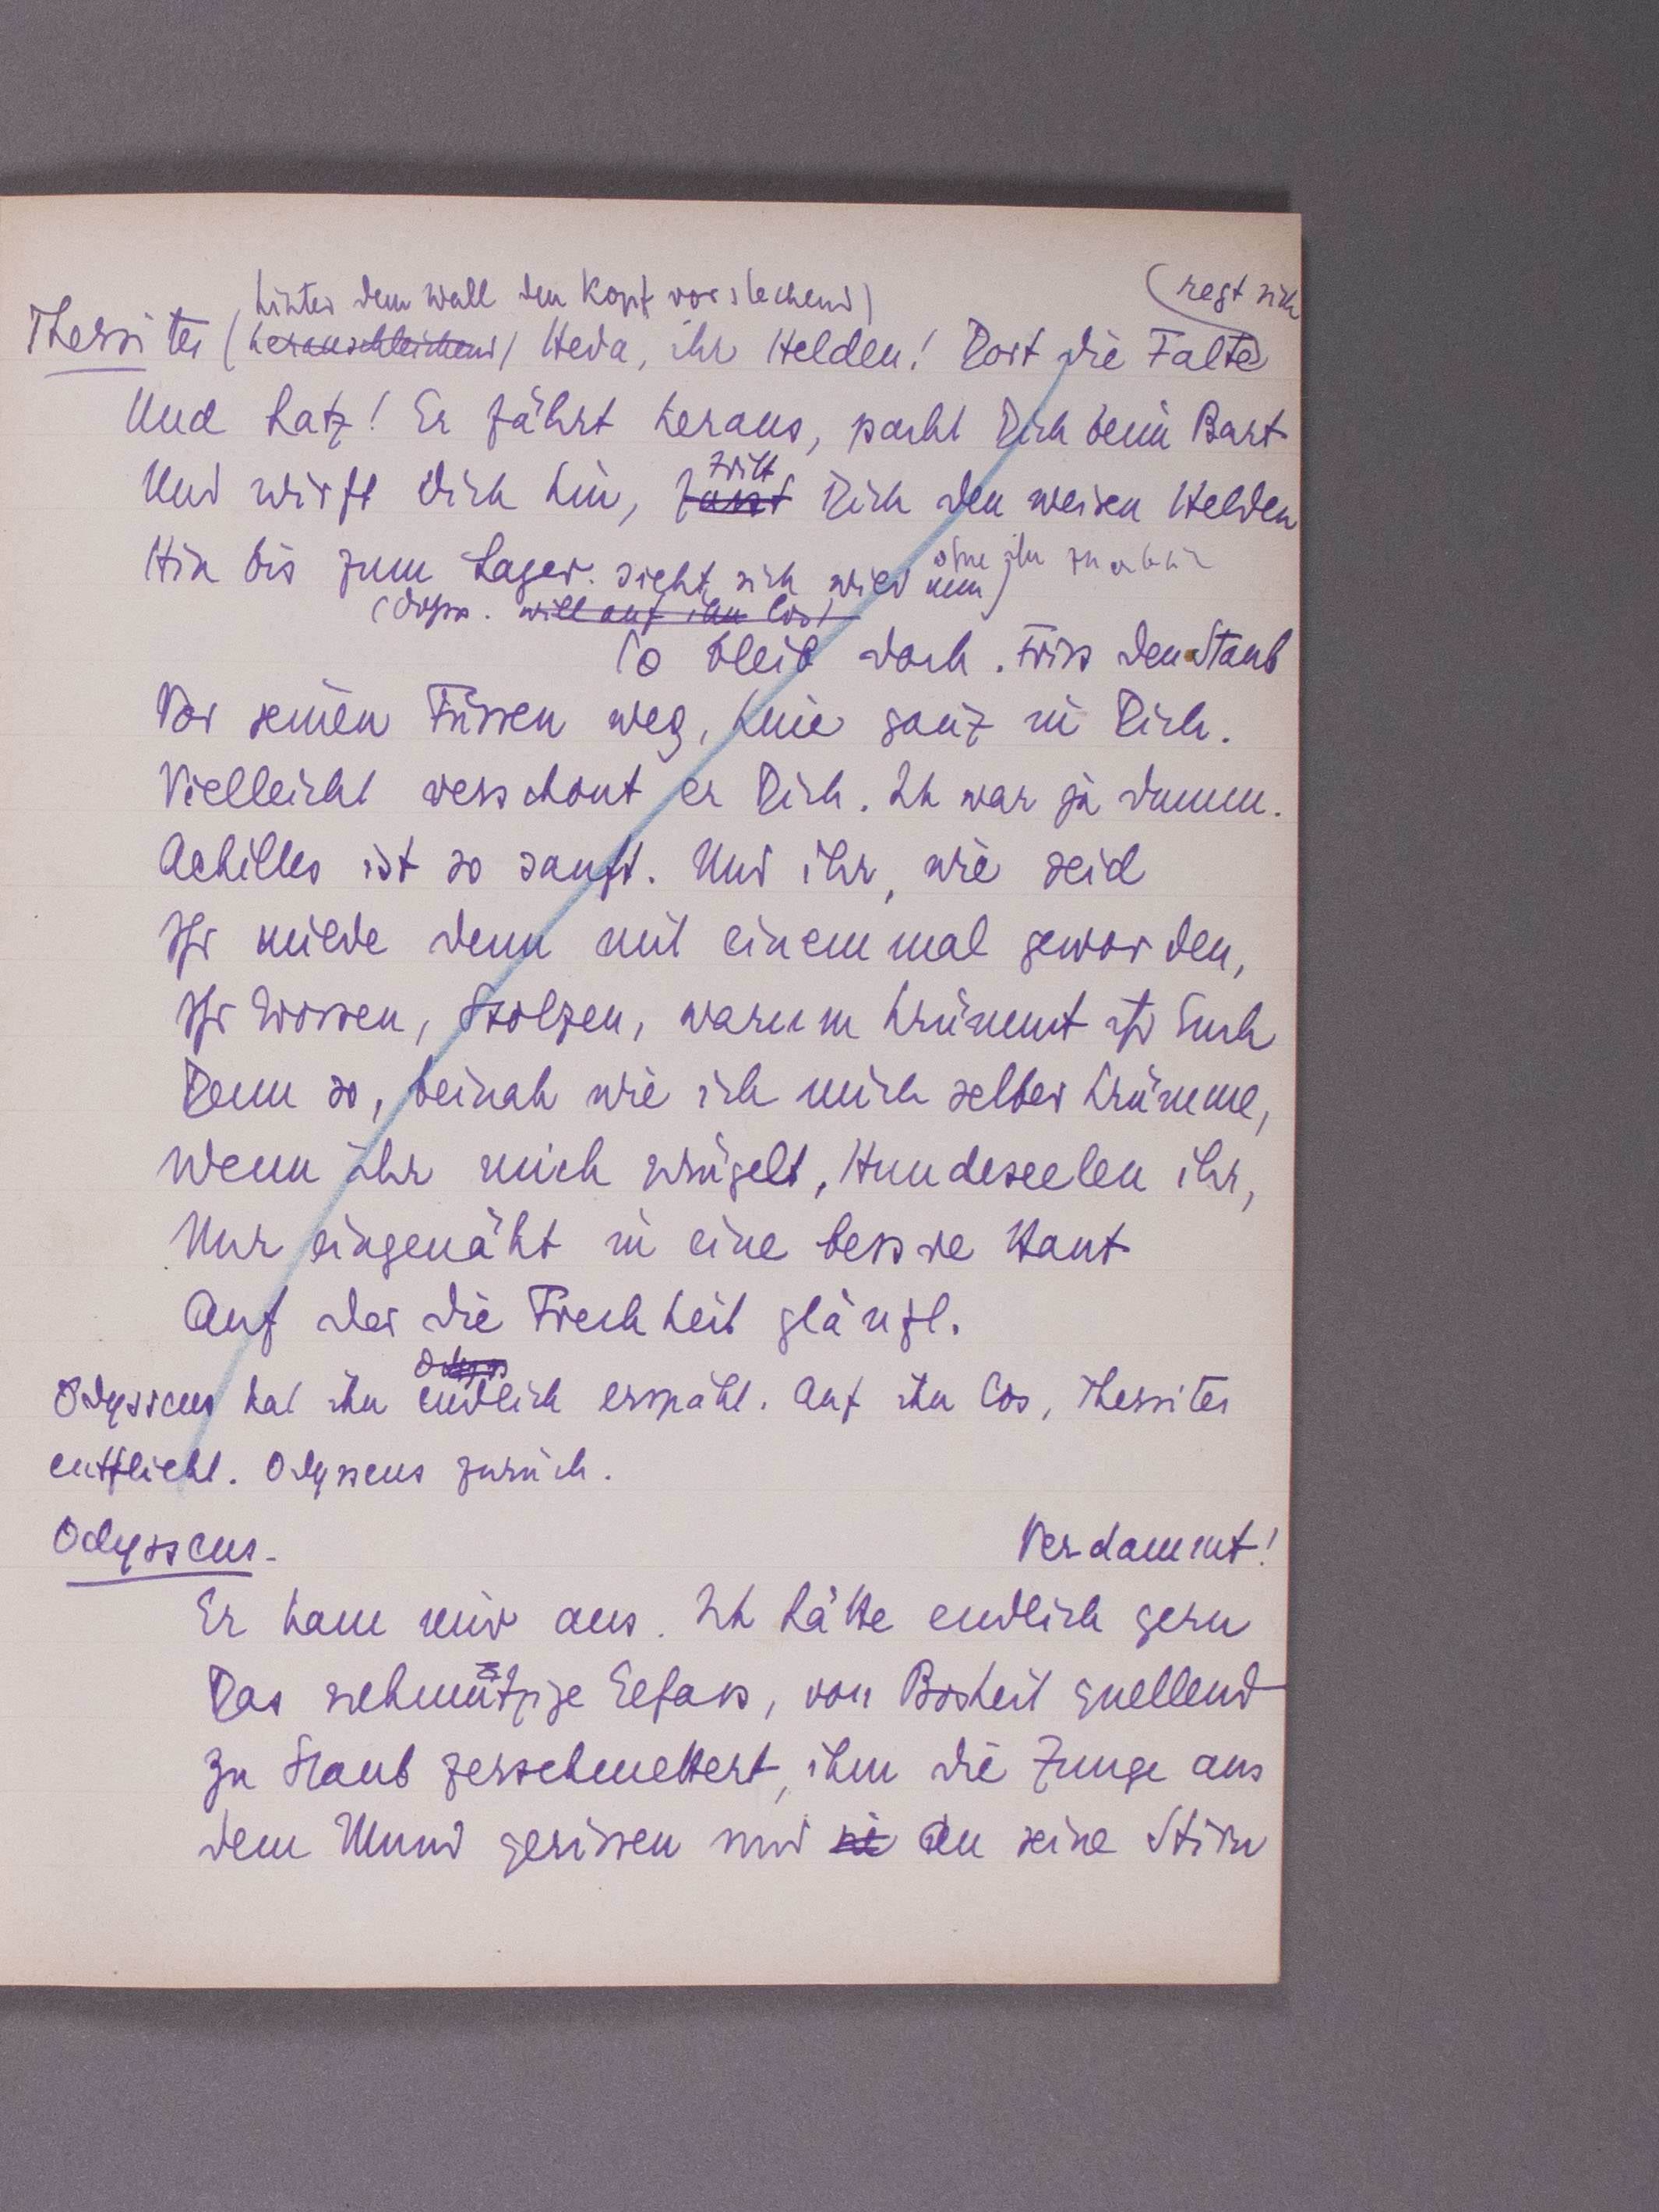 hinter dem Wall den Kopf vorstechend)
(regt sich
Thersites (heranschleichend) Heda, ihr Helden! Dort die Falte
Und hatz! Er fährt heraus, packt Dich beim Bart
Und wirft dich hin, fasst Dich den weisen Helden
tritt
Hin bis zum Lager. sieht sich wild um)
ohne ihn zu
(Odyss. will auf ihn los)
O bleib doch. Friss den Staub
Vor seinen Füssen weg, knie ganz in Dich.
Vielleicht verschont er Dich. Ich war ja dumm.
Achilles ist so sanft. Und ihr, wie seid
Ihr milde denn mit einem mal geworden,
Ihr Grossen, Stolzen, warum krümmt ihr Euch
Denn so, beinah wie ich mich selber krümme,
Wenn ihr mich prügelt, Hundeseelen ihr,
Nur eingenäht in eine bessre Haut
Auf der die Frechheit glänzt.
Odyss
Odysseus hat ihn endlich erspäht. Auf ihn los, Thersites
entflieht. Odysseus zurück.
Odysseus. Verdammt!
Er kam mir aus. Ich hätte endlich gern
Das schmutzige Gefäss, von Bosheit quellend
Zu Staub zerschmettert, ihm die Zunge aus
dem Mund gerissen und an seine Stirn